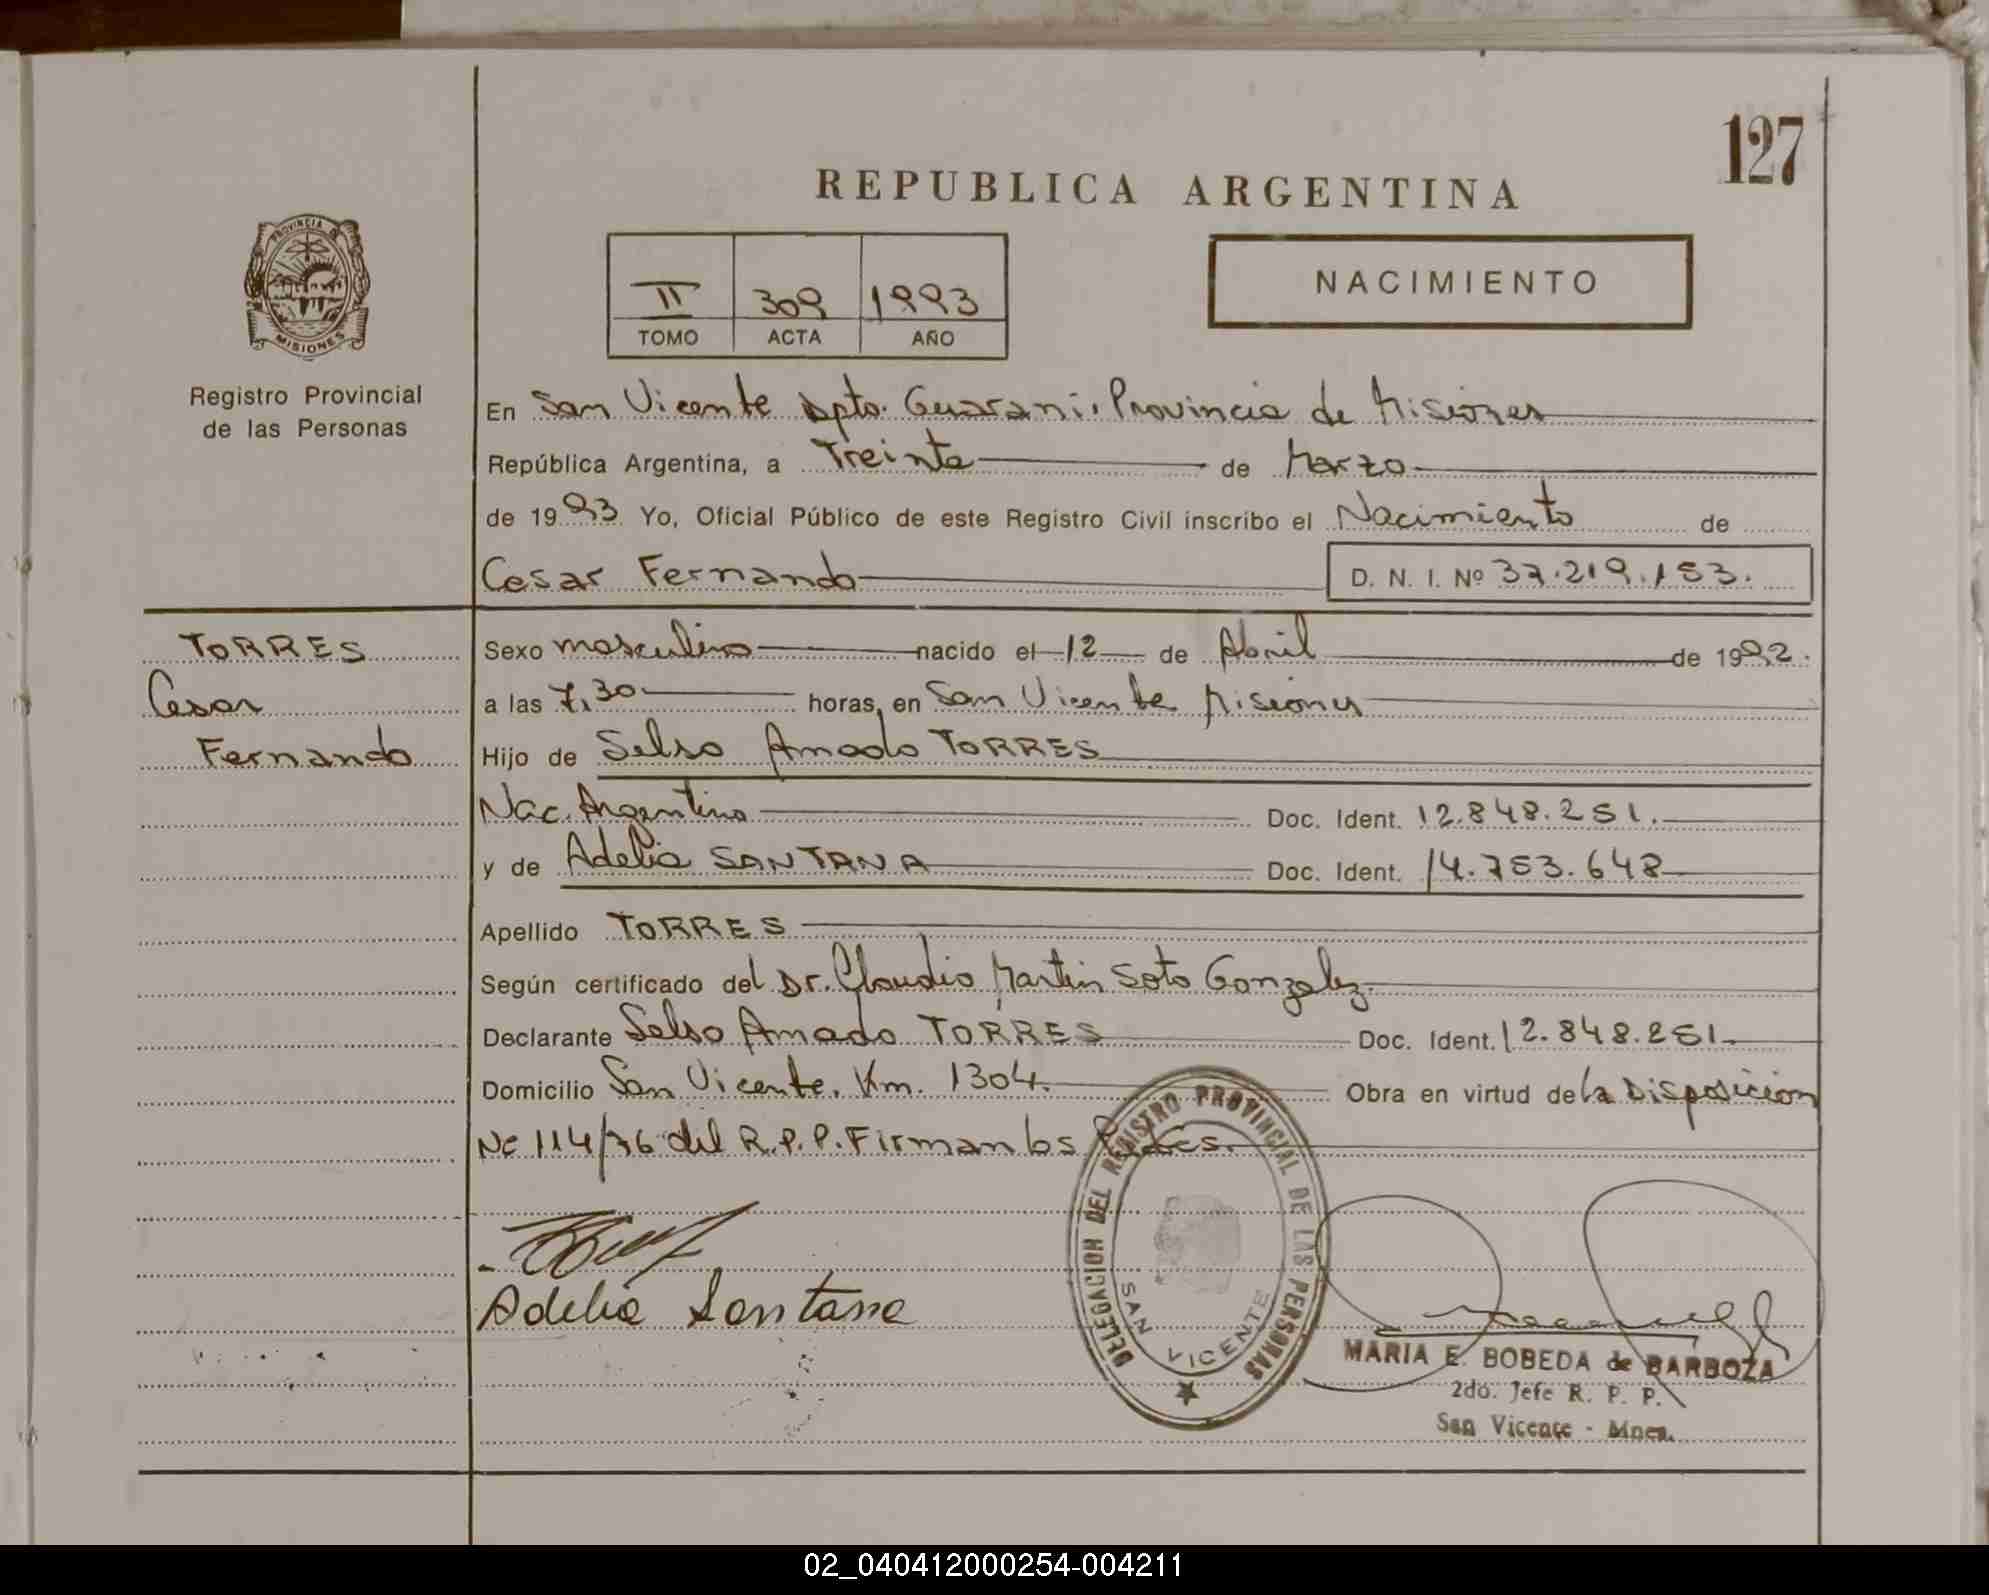 127
REPUBLICA ARGENTINA
PROVINCIA DE
MISIONES
II 309 1993
TOMO ACTA AÑO
NACIMIENTO
Registro Provincial
de las Personas
En San Vicente Dpto. Guarani. Provincia de Misiones
República Argentina, a Treinta de Marzo
de 1993 Yo, Oficial Público de este Registro Civil inscribo el Nacimiento de
Cesar Fernando D. N. I. Nº 37.219.153.
TORRES
Cesar
Fernando
Sexo masculino nacido el 12 de Abril de 1992.
a las 7,30 horas, en San Vicente Misiones
Hijo de Selso Amado TORRES
Nac. Argentino Doc. Ident. 12.848.251.
y de Adelia SANTANA Doc. Ident. 14.753.648
Apellido TORRES
Según certificado del Dr. Claudio Martin Soto Gonzalez.
Declarante Selso Amado TORRES Doc. Ident. 12.848.251.
Domicilio San Vicente. Km. 1304. Obra en virtud de la Disposicion
Nº 114/76 del R.P.P. Firman los Padres.
Adelia Santana
DELEGACION DEL REGISTRO PROVINCIAL DE LAS PERSONAS
SAN VICENTE
MARIA E. BOBEDA de BARBOZA
2do. Jefe R. P. P.
San Vicente - Mnes.
02_040412000254-004211